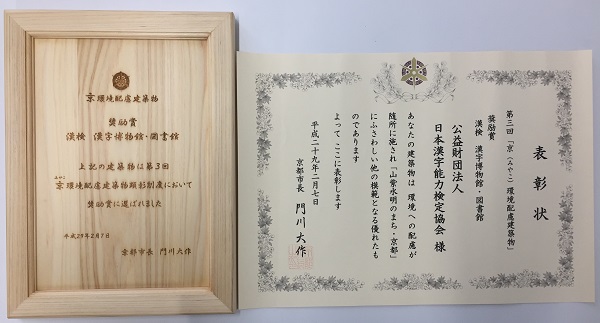 京環境配慮建築物
奨励賞
漢検 漢字博物館・図書館
上記の建築物は第3回
みやこ
京環境配慮建築物顕彰制度において
奨励賞に選ばれました
平成29年2月7日
京都市長 門川大作
表彰状
第三回「京（みやこ）環境配慮建築物」
奨励賞
漢検 漢字博物館・図書館
公益財団法人
日本漢字能力検定協会 様
あなたの建築物は 環境への配慮が
随所に施され「山紫水明のまち・京都」
にふさわしい他の模範となる優れたも
のであります
よって ここに表彰します
平成二十九年二月七日
京都市長 門川大作